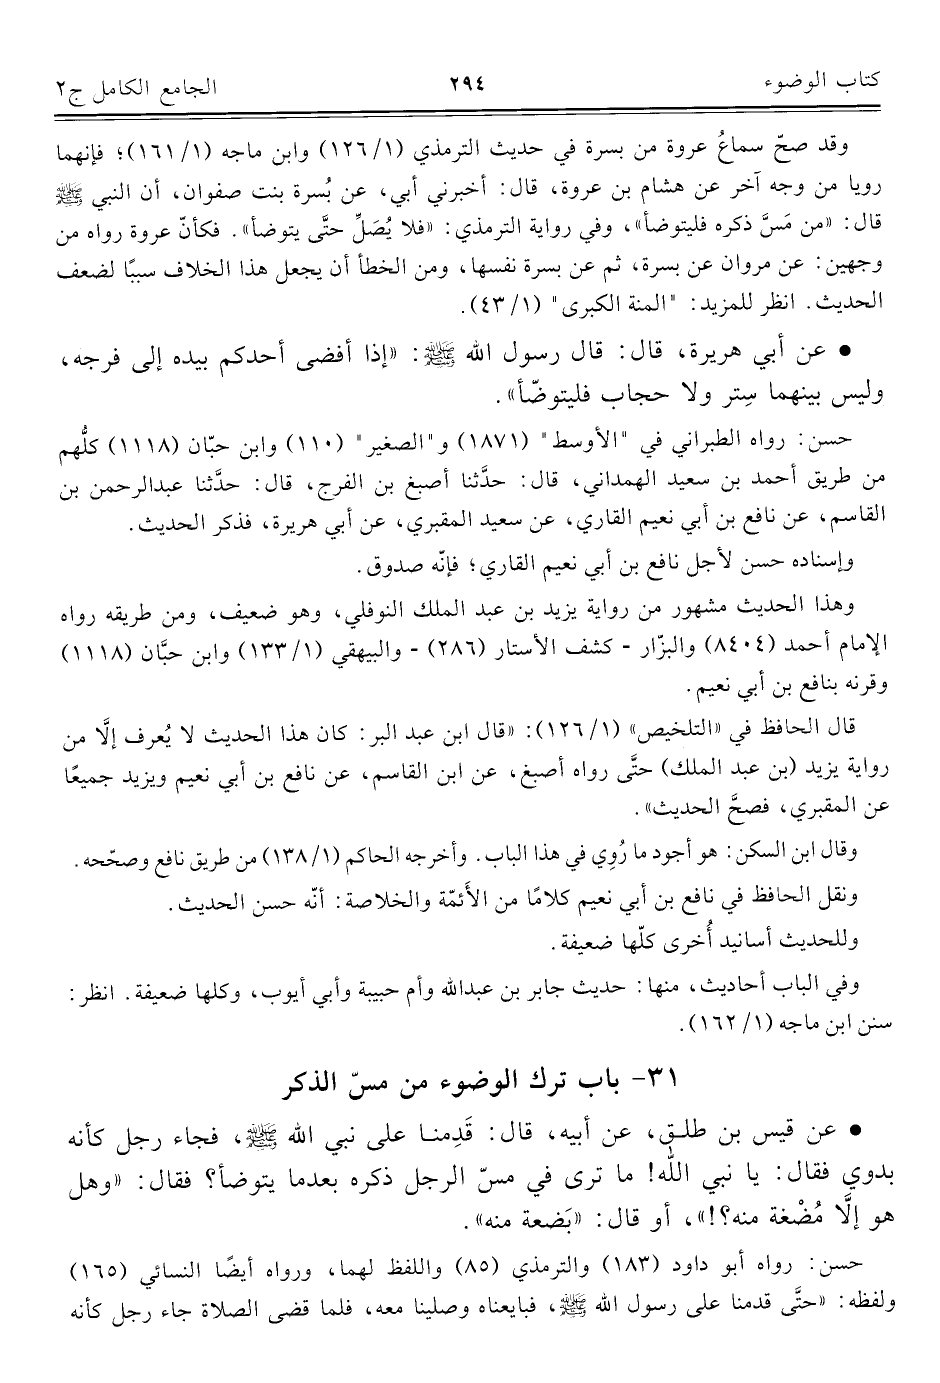 كتاب الوضوء ٢٩٤ الجامع الكامل ج٢
وقد صحّ سماعُ عروة من بسرة في حديث الترمذي (١/ ١٢٦) وابن ماجه (١/ ١٦١)؛ فإنهما
رويا من وجه آخر عن هشام بن عروة، قال: أخبرني أبي، عن بُسرة بنت صفوان، أن النبي ﷺ
قال: «من مَسَّ ذكره فليتوضأ»، وفي رواية الترمذي: «فلا يُصَلِّ حتَّى يتوضأ». فكأنّ عروة رواه من
وجهين: عن مروان عن بسرة، ثم عن بسرة نفسها، ومن الخطأ أن يجعل هذا الخلاف سببًا لضعف
الحديث. انظر للمزيد: "المنة الكبرى" (١/ ٤٣).
• عن أبي هريرة، قال: قال رسول الله ﷺ: «إذا أفضى أحدكم بيده إلى فرجه،
وليس بينهما سِتر ولا حجاب فليتوضّأ».
حسن: رواه الطبراني في "الأوسط" (١٨٧١) و"الصغير" (١١٠) وابن حبّان (١١١٨) كلُّهم
من طريق أحمد بن سعيد الهمداني، قال: حدَّثنا أصبغ بن الفرج، قال: حدَّثنا عبدالرحمن بن
القاسم، عن نافع بن أبي نعيم القاري، عن سعيد المقبري، عن أبي هريرة، فذكر الحديث.
وإسناده حسن لأجل نافع بن أبي نعيم القاري؛ فإنّه صدوق.
وهذا الحديث مشهور من رواية يزيد بن عبد الملك النوفلي، وهو ضعيف، ومن طريقه رواه
الإمام أحمد (٨٤٠٤) والبزّار - كشف الأستار (٢٨٦) - والبيهقي (١/ ١٣٣) وابن حبَّان (١١١٨)
وقرنه بنافع بن أبي نعيم.
قال الحافظ في «التلخيص» (١/ ١٢٦): «قال ابن عبد البر: كان هذا الحديث لا يُعرف إلَّا من
رواية يزيد (بن عبد الملك) حتَّى رواه أصبغ، عن ابن القاسم، عن نافع بن أبي نعيم ويزيد جميعًا
عن المقبري، فصحَّ الحديث».
وقال ابن السكن: هو أجود ما رُوِي في هذا الباب. وأخرجه الحاكم (١/ ١٣٨) من طريق نافع وصحّحه.
ونقل الحافظ في نافع بن أبي نعيم كلامًا من الأَئمّة والخلاصة: أنّه حسن الحديث.
وللحديث أسانيد أُخرى كلّها ضعيفة.
وفي الباب أحاديث، منها: حديث جابر بن عبدالله وأم حبيبة وأبي أيوب، وكلها ضعيفة. انظر:
سنن ابن ماجه (١/ ١٦٢).
٣١- باب ترك الوضوء من مسّ الذكر
• عن قيس بن طلق، عن أبيه، قال: قَدِمنا على نبي الله ﷺ، فجاء رجل كأنه
بدوي فقال: يا نبي الله! ما ترى في مسّ الرجل ذكره بعدما يتوضأ؟ فقال: «وهل
هو إلَّا مُضْغة منه؟!»، أو قال: «بَضعة منه».
حسن: رواه أبو داود (١٨٣) والترمذي (٨٥) واللفظ لهما، ورواه أيضًا النسائي (١٦٥)
ولفظه: «حتَّى قدمنا على رسول الله ﷺ، فبايعناه وصلينا معه، فلما قضى الصلاة جاء رجل كأنه